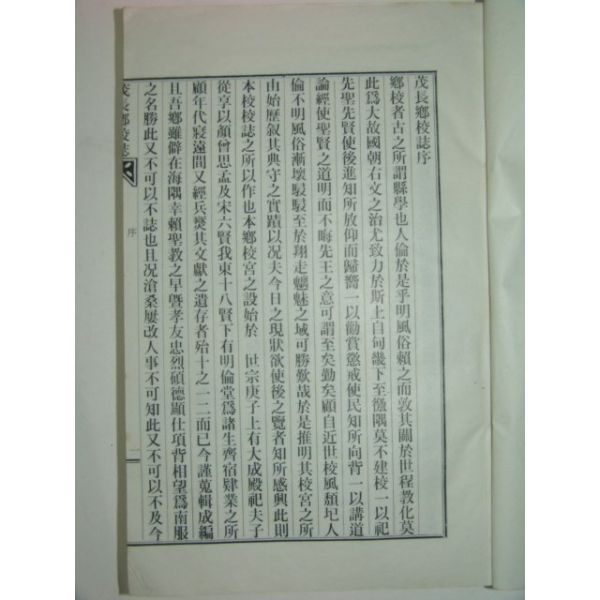 茂長鄉校誌序
鄉校者古之所謂縣學也人倫於是乎明風俗賴之而敦其關於世程教化莫
此爲大故國朝右文之治尤致力於斯上自甸畿下至徼隅莫不建校一以祀
先聖先賢使後進知所放仰而歸嚮一以勸賞懲戒使民知所向背一以講道
論經使聖賢之道明而不晦先王之意可謂至矣勤矣顧自近世校風頹圮人
倫不明風俗漸壞駸駸至於翔走魑魅之域可勝歎哉於是推明其校宮之所
由始歷叙其典守之實蹟以況夫今日之現狀欲使後之覽者知所感興此則
本校校誌之所以作也本鄉校宮之設始於 世宗庚子上有大成殿祀夫子
從享以顏曾思孟及宋六賢我東十八賢下有明倫堂爲諸生齊宿肄業之所
顧年代寢遠間又經兵燹其文獻之遺存者殆十之一二而已今謹蒐輯成編
且吾鄉雖僻在海隅幸賴聖教之早曁孝友忠烈碩德顯仕項背相望爲南服
之名勝此又不可以不誌也且況滄桑屢改人事不可知此又不可以不及今
茂長鄉校誌
序
一